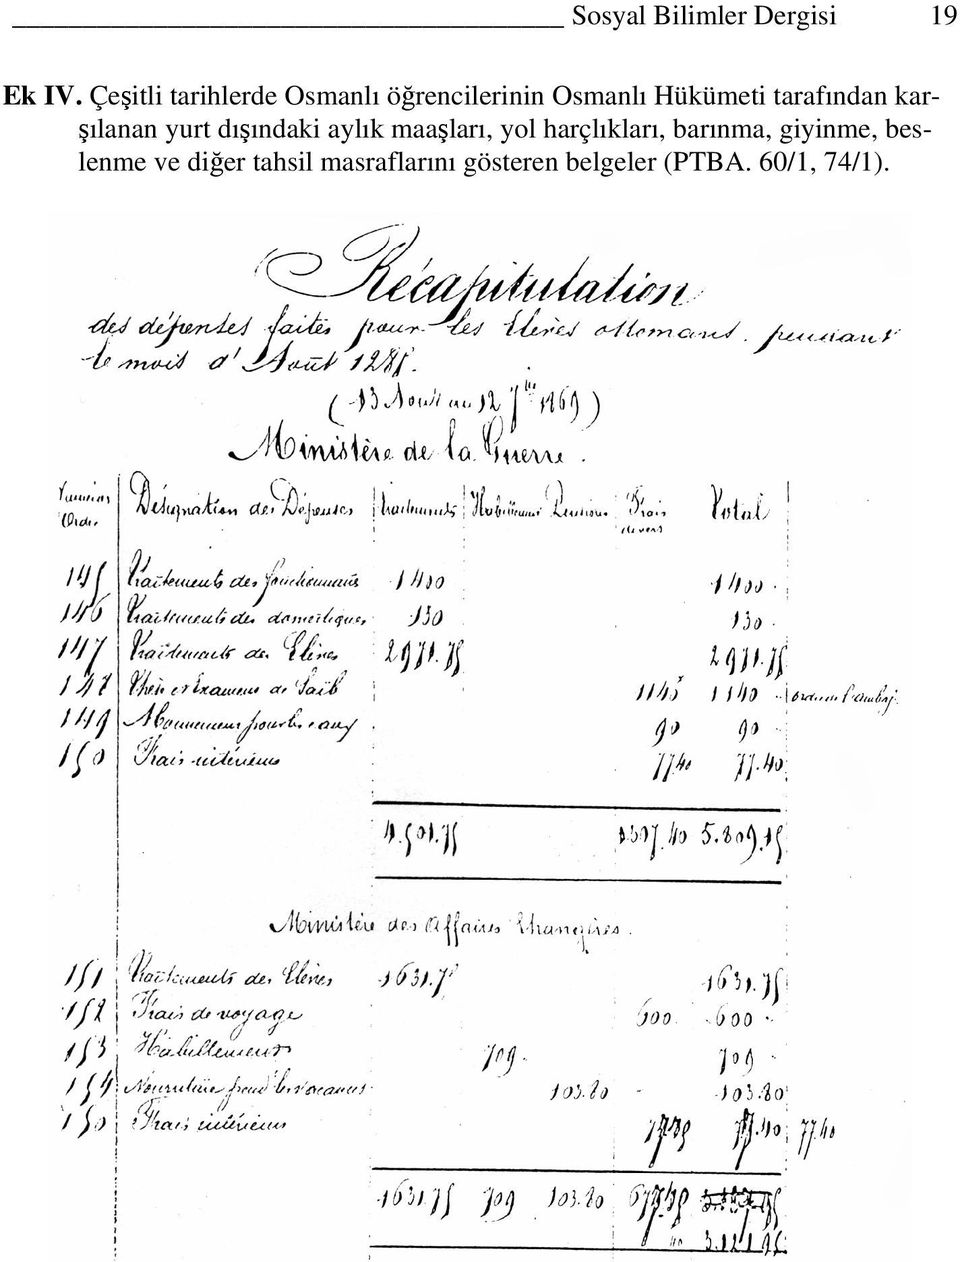 Sosyal Bilimler Dergisi 19
Ek IV. Çeşitli tarihlerde Osmanlı öğrencilerinin Osmanlı Hükümeti tarafından kar-
şılanan yurt dışındaki aylık maaşları, yol harçlıkları, barınma, giyinme, bes-
lenme ve diğer tahsil masraflarını gösteren belgeler (PTBA. 60/1, 74/1).
Récapitulation
des dépenses faites pour les Elèves ottomans, pendant
le mois d'Août 1285.
(13 Août au 12 7bre 1869)
Ministère de la Guerre.
Numéros Désignation des Dépenses Traitements Habillement Pensions Frais Total
d'Ordre divers
145 Traitements des fonctionnaires 1400 1400
146 Traitements des domestiques 130 130
147 Traitements des Elèves 2971.75 2971.75
148 et Examens de Saïb 1140 1140
149 Abonnement pour les eaux 90 90
150 Frais intérieurs 77.40 77.40
4.501.75 1307.40 5.809.15
Ministère des Affaires Etrangères.
151 Traitements des Elèves 1631.75 1631.75
152 Frais de voyage 600 600
153 Habillement 709 709
154 Nourriture les vacances 103.80 103.80
150 Frais intérieurs 77.40 77.40
1631.75 709 103.80
3.121.95